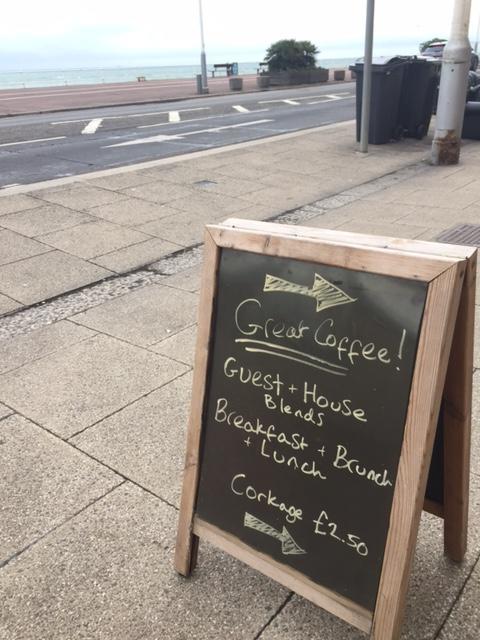 Great Coffee!
Guest + House
Blends
Breakfast + Brunch
+ Lunch
Corkage £2.50